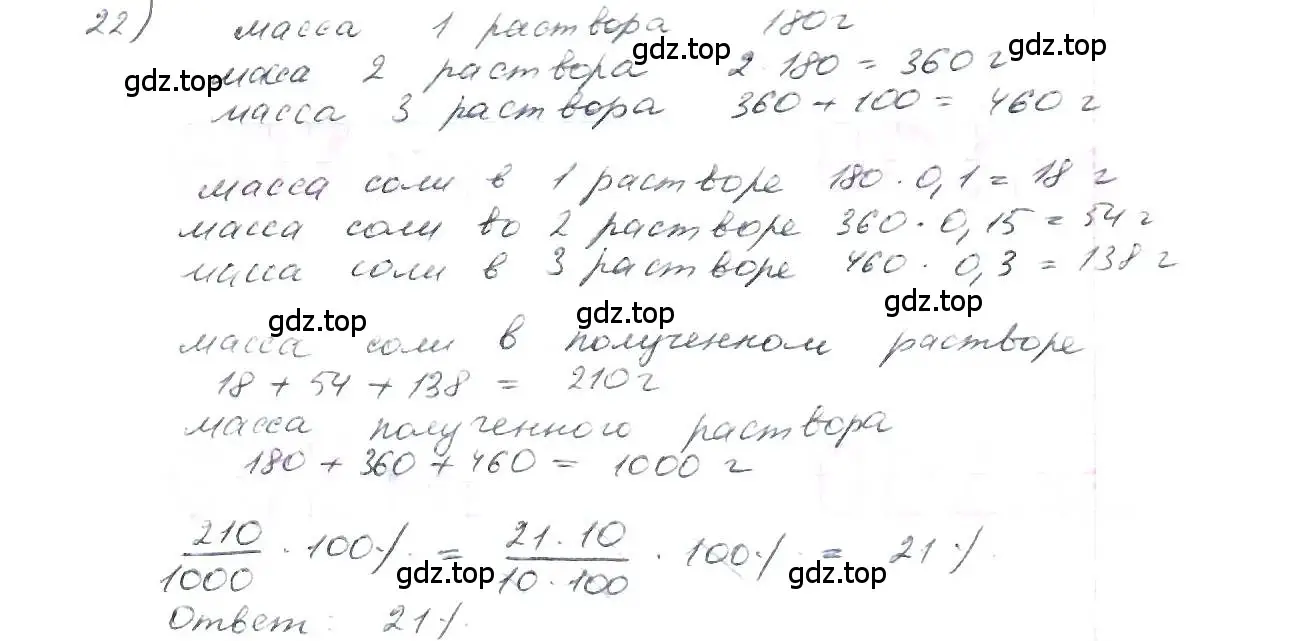 22) масса 1 раствора 180 г
gdz.top gdz.top gdz.top
масса 2 раствора 2 · 180 = 360 г
масса 3 раствора 360 + 100 = 460 г
масса соли в 1 растворе 180 · 0,1 = 18 г
масса соли во 2 растворе 360 · 0,15 = 54 г
масса соли в 3 растворе 460 · 0,3 = 138 г
gdz.top gdz.top gdz.top
масса соли в полученном растворе
18 + 54 + 138 = 210 г
масса полученного раствора
180 + 360 + 460 = 1000 г
210/1000 · 100% = 21·10/10·100 · 100% = 21%.
gdz.top gdz.top
Ответ: 21%.